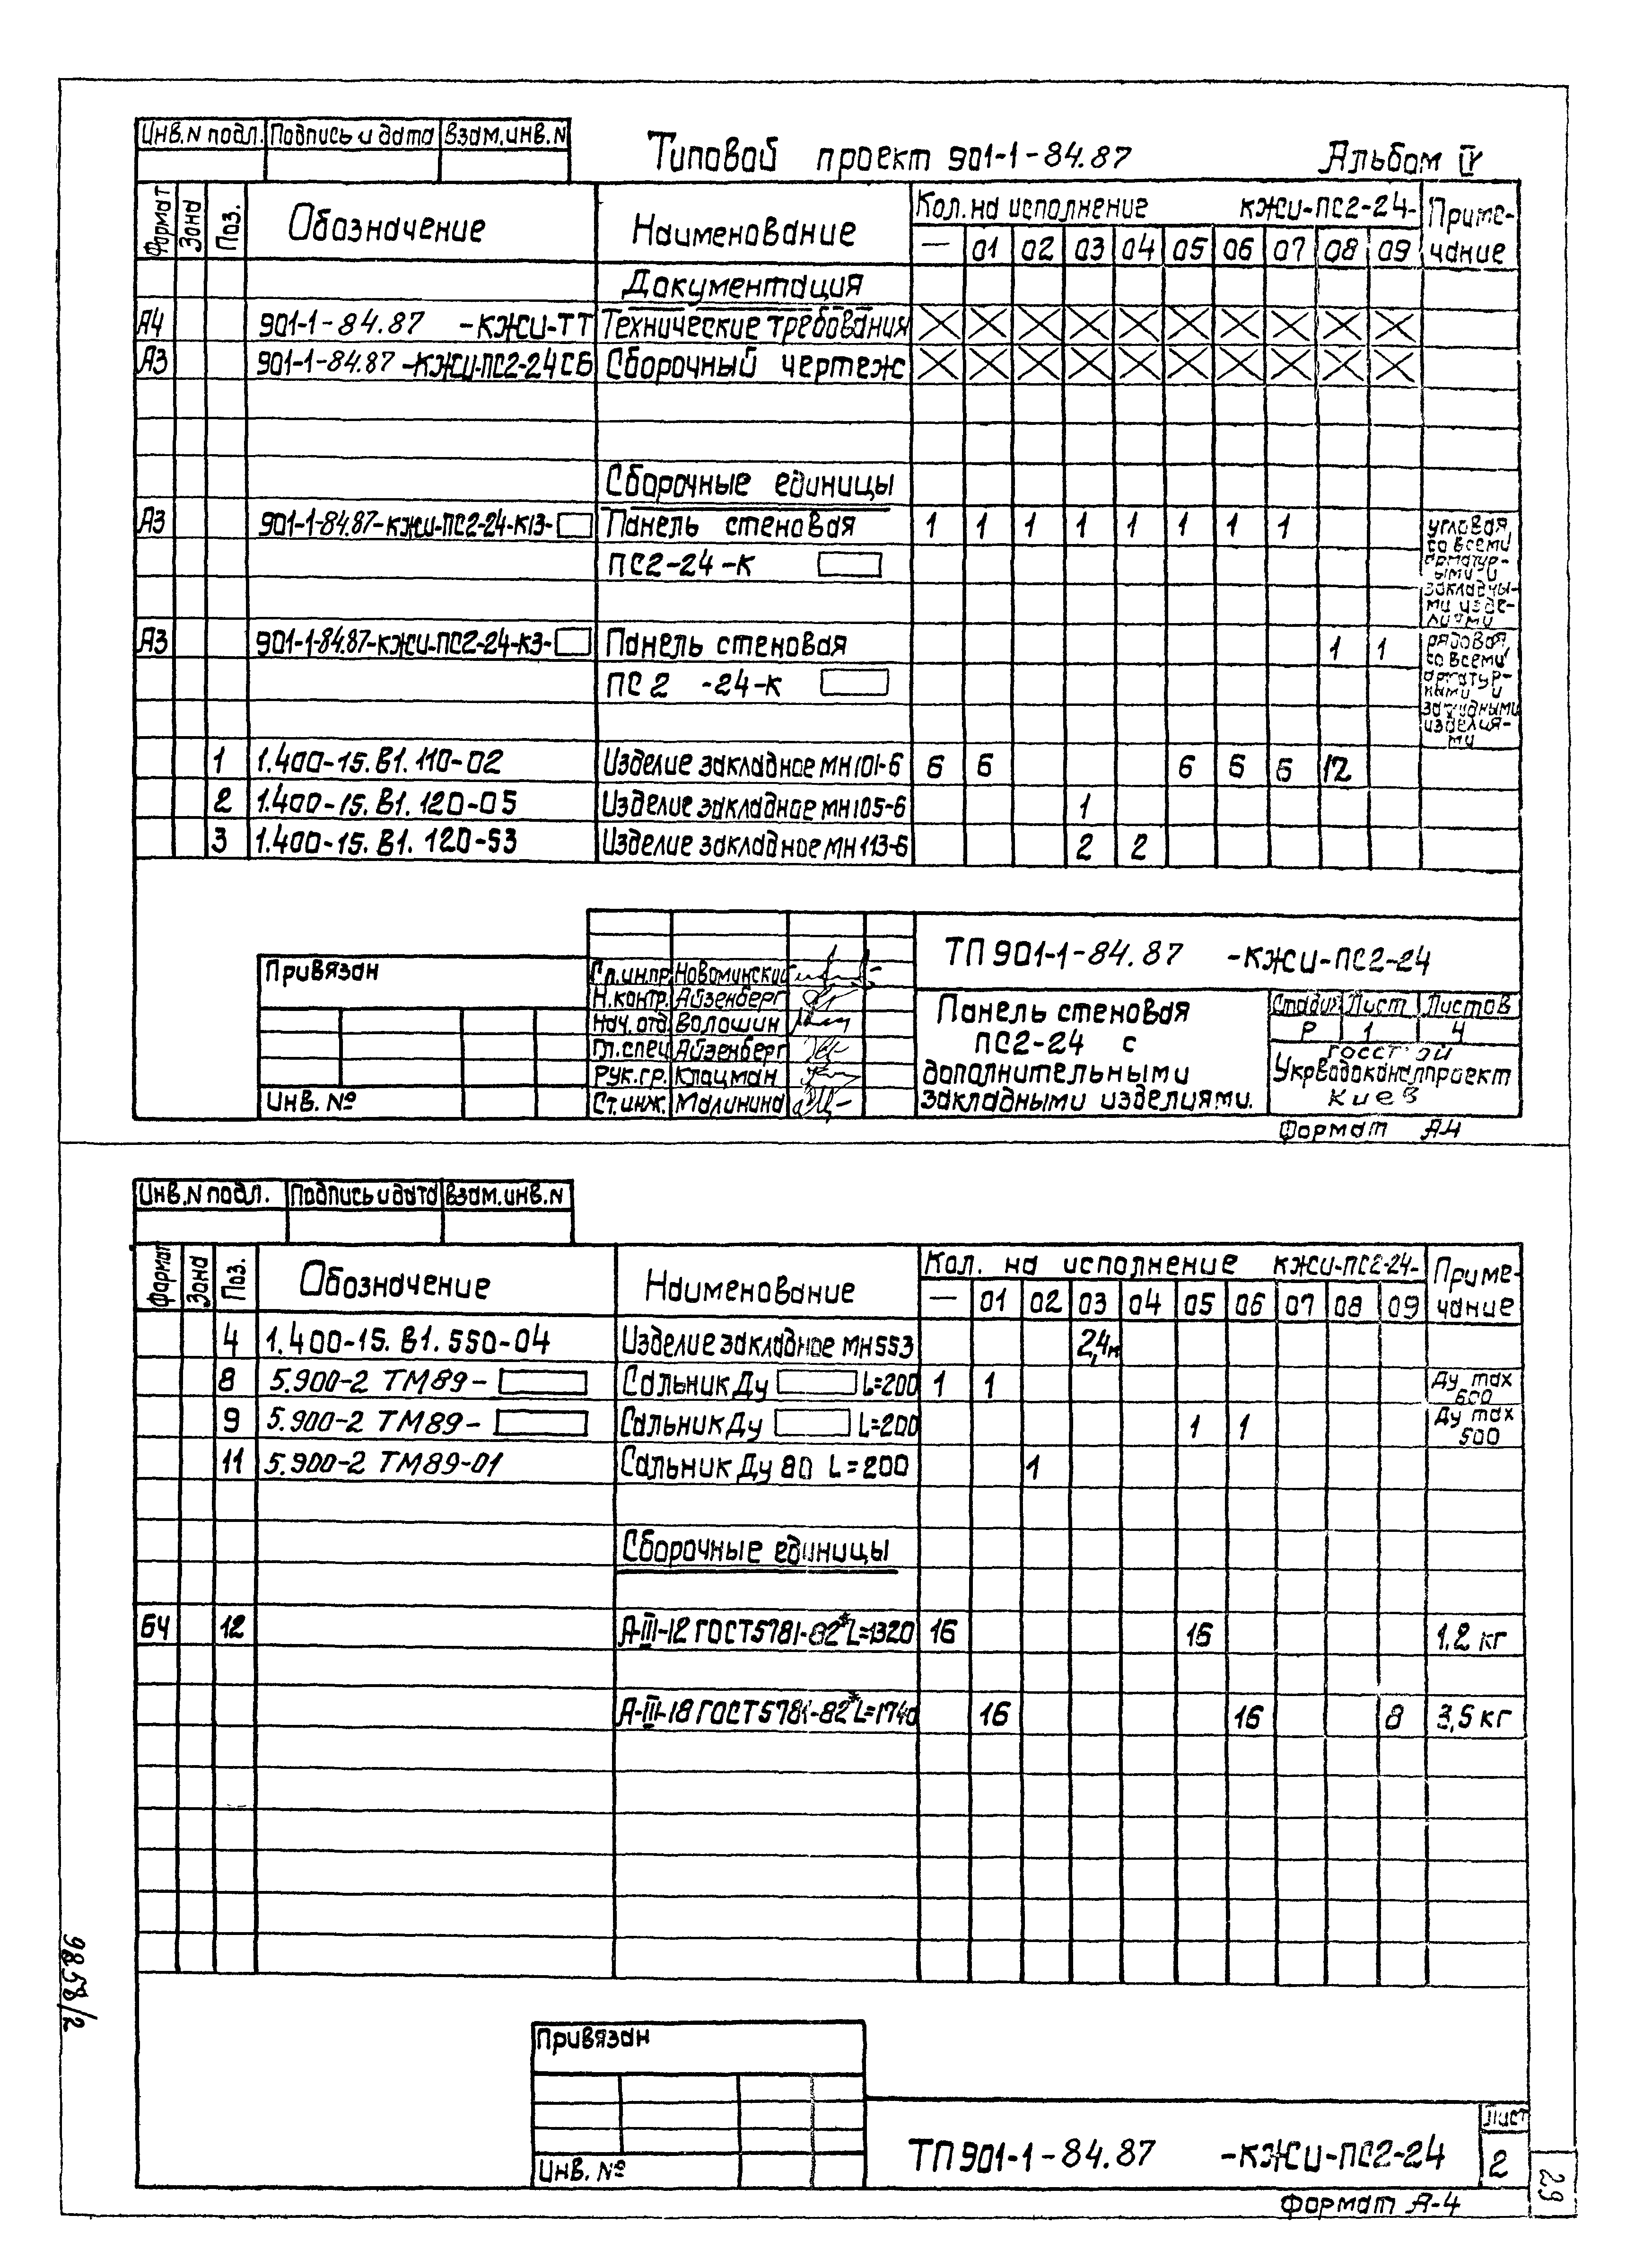 Инв.N подл. Подпись и дата Взам.инв.N
Типовой проект 901-1-84.87 Альбом IV
Формат Зона Поз. Обозначение Наименование Кол.на исполнение КЖИ-ПС2-24- Приме-
чание
— 01 02 03 04 05 06 07 08 09
Документация
А4 901-1-84.87 -КЖИ-ТТ Технические требования
А3 901-1-84.87 -КЖИ-ПС2-24СБ Сборочный чертеж
Сборочные единицы
А3 901-1-84.87-КЖИ-ПС2-24-К13- Панель стеновая 1 1 1 1 1 1 1 1
ПС2-24-К
угловая
со всеми
арматур-
ными и
закладны-
ми изде-
лиями
А3 901-1-84.87-КЖИ-ПС2-24-К3- Панель стеновая 1 1
ПС 2 -24-К
рядовая
со всеми
арматур-
ными и
закладными
изделия-
ми
1 1.400-15.В1.110-02 Изделие закладное МН101-6 6 6 6 6 6 12
2 1.400-15.В1.120-05 Изделие закладное МН105-6 1
3 1.400-15.В1.120-53 Изделие закладное МН113-6 2 2
Привязан
Инв. №
Гл.инпр. Новоминский
Н.контр. Айзенберг
Нач.отд. Волошин
Гл.спец. Айзенберг
Рук.гр. Клацман
Ст.инж. Малинина
ТП 901-1-84.87 -КЖИ-ПС2-24
Панель стеновая
ПС2-24 с
дополнительными
закладными изделиями.
Стадия Лист Листов
Р 1 4
Госстрой
Укрводоканалпроект
Киев
Формат А4
Инв.N подл. Подпись и дата Взам.инв.N
Формат Зона Поз. Обозначение Наименование Кол. на исполнение КЖИ-ПС2-24- Приме-
чание
— 01 02 03 04 05 06 07 08 09
4 1.400-15.В1.550-04 Изделие закладное МН553 2,4м
8 5.900-2 ТМ89- Сальник Ду L=200 1 1 Ду max
600
9 5.900-2 ТМ89- Сальник Ду L=200 1 1 Ду max
500
11 5.900-2 ТМ89-01 Сальник Ду 80 L=200 1
Сборочные единицы
БЧ 12 А-III-12 ГОСТ5781-82* L=1320 16 16 1.2 кг
А-III-18 ГОСТ5781-82* L=1740 16 16 8 3,5 кг
9858/2
Привязан
Инв. №
ТП 901-1-84.87 -КЖИ-ПС2-24
Лист
2
29
Формат А-4